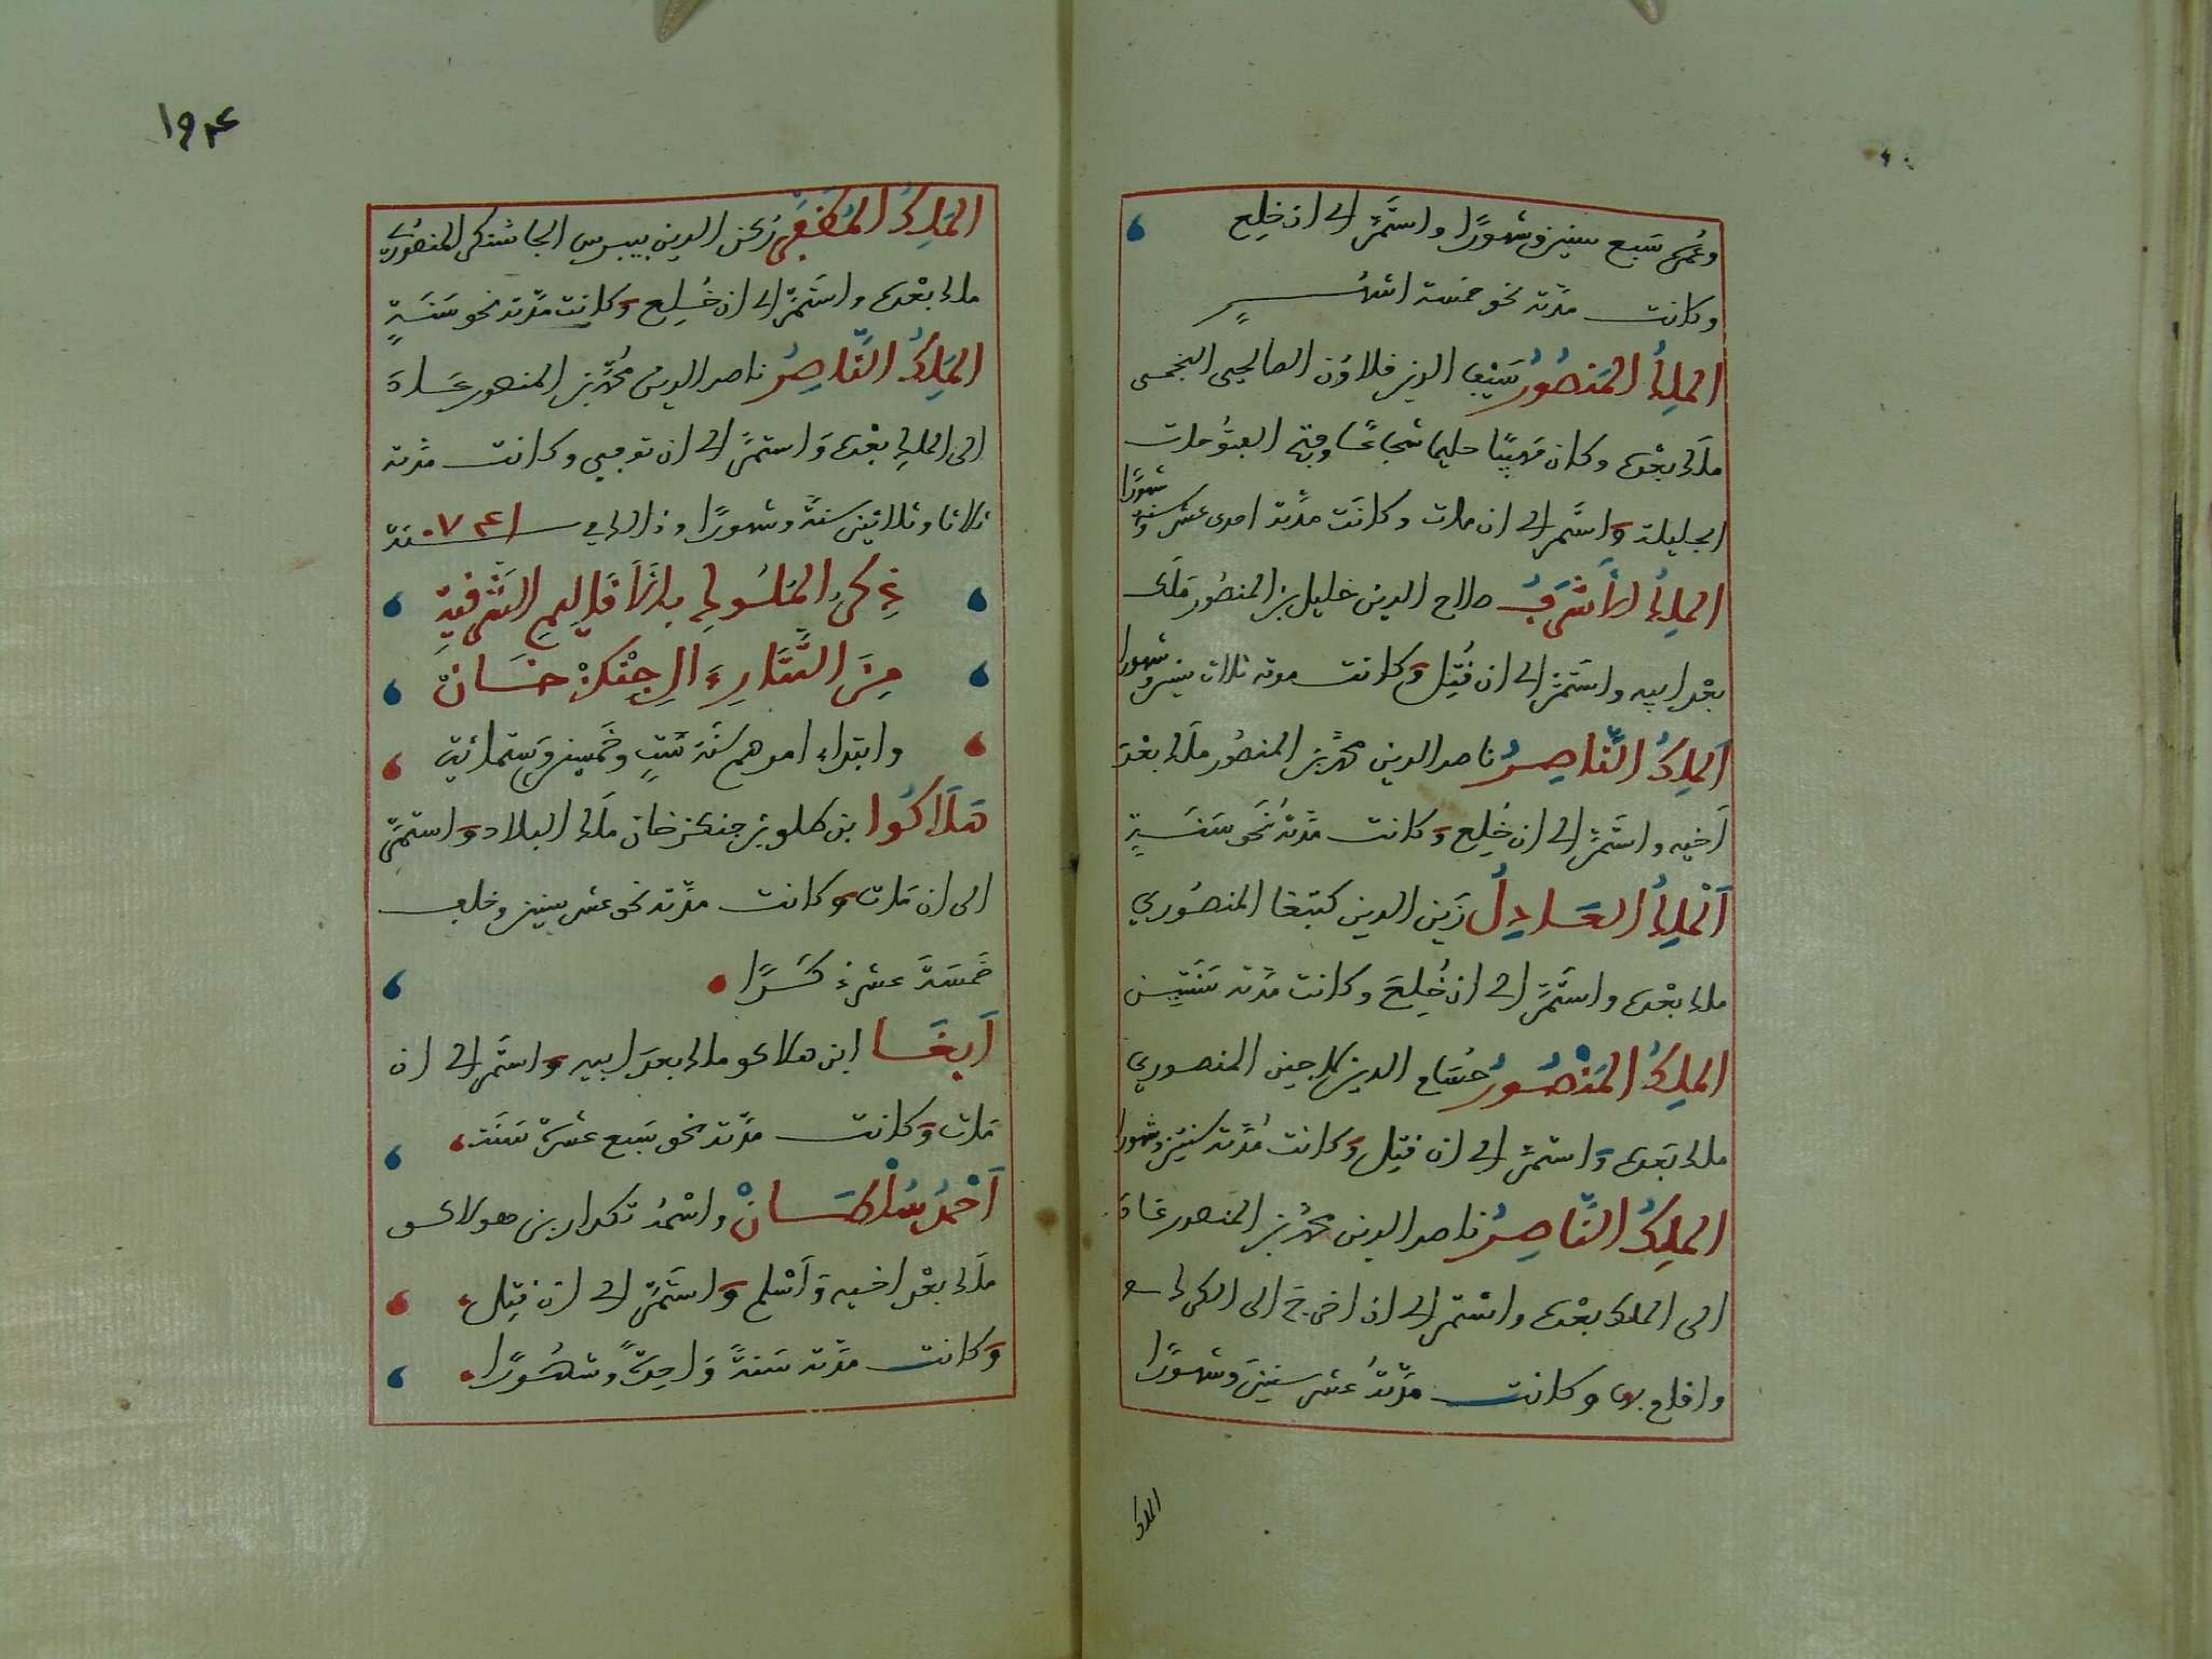 وعمره سبع سنين وشهورًا واستمر الى ان خلع
وكانت مدته نحو خمسة اشهر
الملك المنصور سيف الدين قلاوون الصالحي النجمي
ملك بعده وكان مهيبًا حليما شجاعًا وفتح الفتوحات
الجليلة واستمر الى ان مات وكانت مدته احدى عشر سنة وشهورًا
الملك الأشرف صلاح الدين خليل بن المنصور ملك
بعد ابيه واستمر الى ان قتل وكانت مدته ثلاث سنين وشهورا
الملك الناصر ناصر الدين محمد بن المنصور ملك بعد
أخيه واستمر الى ان خلع وكانت مدته نحو سنة
الملك العادل زين الدين كتبغا المنصوري
ملك بعده واستمر الى ان خلع وكانت مدته سنتين
الملك المنصور حسام الدين لاجين المنصوري
ملك بعده واستمر الى ان قتل وكانت مدته سنتين وشهورا
الملك الناصر ناصر الدين محمد بن المنصور عاد
الى الملك بعده واستمر الى ان اخرج الى الكرك
واقام بها وكانت مدته عشر سنين وشهورًا
الملك
١٩٤
الملك المظفر ركن الدين بيبرس الجاشنكير المنصوري
ملك بعده واستمر الى ان خلع وكانت مدته نحو سنة
الملك الناصر ناصر الدين محمد بن المنصور عاد
الى الملك بعده واستمر الى ان توفي وكانت مدته
ثلاثا وثلاثين سنة وشهورًا وذلك في سنة ٧٤١
ذكر الملوك بالأقاليم الشرقية
من التتار آل جنكز خان
وابتداء امرهم سنة ست وخمسين وستمائة
هلاكوا بن طلو بن جنكز خان ملك البلاد واستمر
الى ان مات وكانت مدته نحو عشر سنين وخلف
خمسة عشر ذكرًا
أبغا ابن هلاكو ملك بعد ابيه واستمر الى ان
مات وكانت مدته نحو سبع عشرة سنة
أحمد سلطان واسمه تكدار بن هولاكو
ملك بعد اخيه وأسلم واستمر الى ان قتل
وكانت مدته سنة واحدة وشهورًا